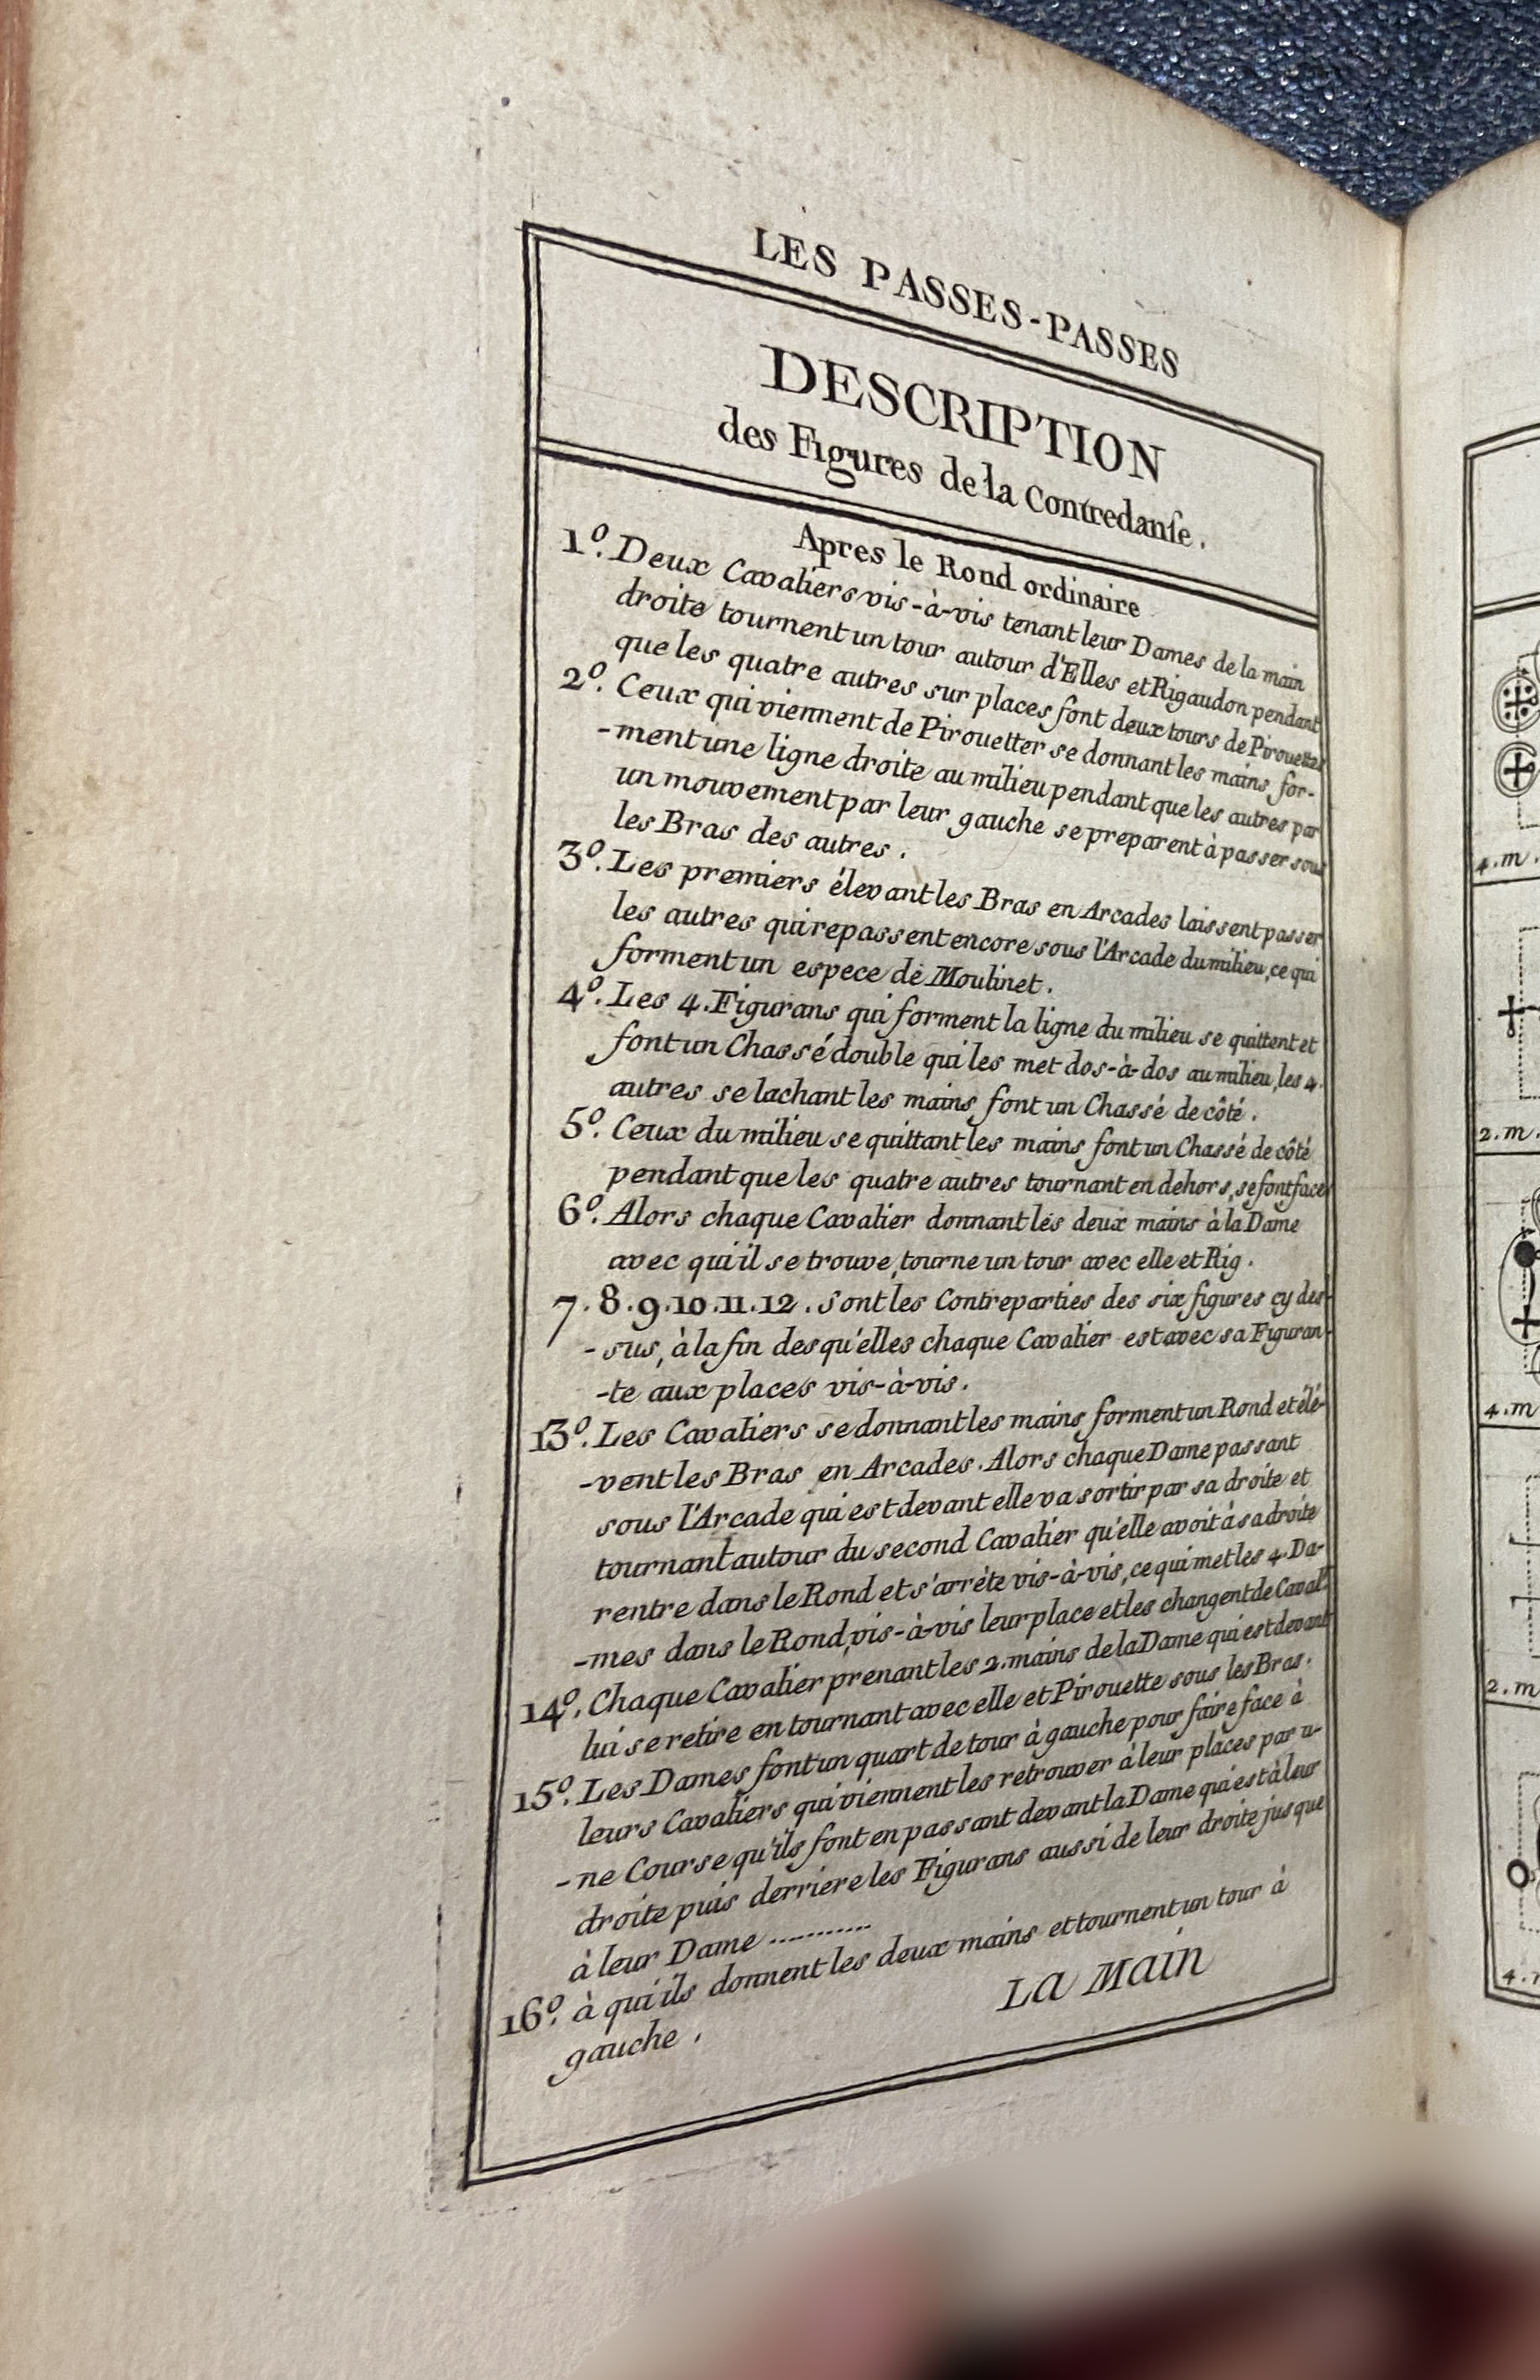 LES PASSES-PASSES
DESCRIPTION
des Figures de la Contredanſe.
Apres le Rond ordinaire
1º. Deux Cavaliers vis-à-vis tenant leur Dames de la main
droite tournent un tour autour d'Elles et Rigaudon pendant
que les quatre autres sur places font deux tours de Pirouettes
2º. Ceux qui viennent de Pirouetter se donnant les mains for-
-ment une ligne droite au milieu pendant que les autres par
un mouvement par leur gauche se preparent à passer sous
les Bras des autres.
3º. Les premiers élevant les Bras en Arcades laissent passer
les autres qui repassent encore sous l'Arcade du milieu, ce qui
forment un espece de Moulinet.
4º. Les 4. Figurans qui forment la ligne du milieu se quittent et
font un Chassé double qui les met dos-à-dos au milieu, les 4.
autres se lachant les mains font un Chassé de côté.
5º. Ceux du milieu se quittant les mains font un Chassé de côté
pendant que les quatre autres tournant en dehors, se font face
6º. Alors chaque Cavalier donnant les deux mains à la Dame
avec qui il se trouve, tourne un tour avec elle et Rig.
7. 8. 9. 10. 11. 12. sont les Contreparties des six figures cy des-
-sus, à la fin desqu'elles chaque Cavalier est avec sa Figuran-
-te aux places vis-à-vis.
13º. Les Cavaliers se donnant les mains forment un Rond et élé-
-vent les Bras en Arcades. Alors chaque Dame passant
sous l'Arcade qui est devant elle va sortir par sa droite et
tournant autour du second Cavalier qu'elle avoit à sa droite
rentre dans le Rond et s'arrète vis-à-vis, ce qui met les 4. Da-
-mes dans le Rond, vis-à-vis leur place et les changent de Caval.
14º. Chaque Cavalier prenant les 2. mains de la Dame qui est devant
lui se retire en tournant avec elle et Pirouette sous les Bras.
15º. Les Dames font un quart de tour à gauche pour faire face à
leurs Cavaliers qui viennent les retrouver à leur places par u-
-ne Course qu'ils font en passant devant la Dame qui est à leur
droite puis derriere les Figurans aussi de leur droite jusque
à leur Dame ...........
16º. à qui ils donnent les deux mains et tournent un tour à
gauche.
La Main
4. m.
2. m.
4. m
2. m
4.